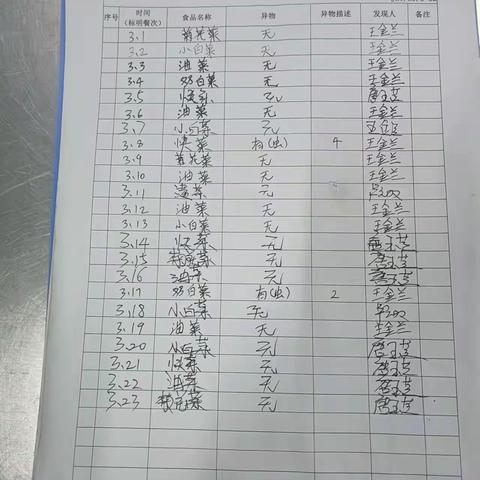 序号 时间（标明餐次） 食品名称 异物 异物描述 发现人 备注
3.1 菊花菜 无 王金兰
3.2 小白菜 无 王金兰
3.3 油菜 无 王金兰
3.4 奶白菜 无 王金兰
3.5 快菜 无
3.6 油菜 无 王金兰
3.7 小白菜 无
3.8 快菜 有(虫) 4 王金兰
3.9 菊花菜 无 王金兰
3.10 油菜 无 王金兰
3.11 无
3.12 油菜 无 王金兰
3.13 小白菜 无 王金兰
3.14 快菜 无
3.15 无
3.16 油菜 无
3.17 奶白菜 有(虫) 2 王金兰
3.18 小白菜 无
3.19 油菜 无 王金兰
3.20 小白菜 无
3.21 快菜 无
3.22 油菜 无
3.23 无